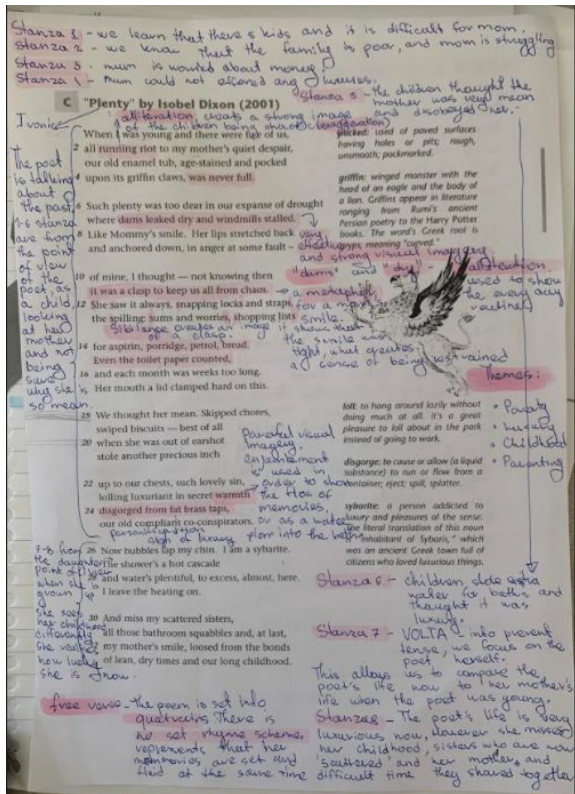 Stanza 1 - we learn that there 5 kids and it is difficult for mom.
Stanza 2 - we know that the family is poor, and mom is struggling
Stanza 3 - mum is worried about money.
Stanza 4 - mum could not afford any luxuries.
Stanza 5 - the children thought the
mother was very mean
and disobeyed her.
C "Plenty" by Isobel Dixon (2001)
alliteration, creats a strong image
of the children being chaotic (exaggeration)
When I was young and there were five of us,
2 all running riot to my mother's quiet despair,
our old enamel tub, age-stained and pocked
4 upon its griffin claws, was never full.
6 Such plenty was too dear in our expanse of drought
where dams leaked dry and windmills stalled.
8 Like Mommy's smile. Her lips stretched back
and anchored down, in anger at some fault –
10 of mine, I thought — not knowing then
it was a clasp to keep us all from chaos.
12 She saw it always, snapping locks and straps,
the spilling: sums and worries, shopping lists
14 for aspirin, porridge, petrol, bread.
Even the toilet paper counted,
16 and each month was weeks too long.
Her mouth a lid clamped hard on this.
18 We thought her mean. Skipped chores,
swiped biscuits — best of all
20 when she was out of earshot
stole another precious inch
22 up to our chests, such lovely sin,
lolling luxuriant in secret warmth
24 disgorged from fat brass taps,
our old compliant co-conspirators.
26 Now bubbles lap my chin. I am a sybarite.
The shower's a hot cascade
28 and water's plentiful, to excess, almost, here.
I leave the heating on.
30 And miss my scattered sisters,
all those bathroom squabbles and, at last,
32 my mother's smile, loosed from the bonds
of lean, dry times and our long childhood.
pocked: used of paved surfaces
having holes or pits; rough,
unsmooth; pockmarked.
griffin: winged monster with the
head of an eagle and the body of
a lion. Griffins appear in literature
ranging from Rumi's ancient
Persian poetry to the Harry Potter
books. The word's Greek root is
meaning "curved."
loll: to hang around lazily without
doing much at all. It's a great
pleasure to loll about in the park
instead of going to work.
disgorge: to cause or allow (a liquid
substance) to run or flow from a
container; eject; spill, splatter.
sybarite: a person addicted to
luxury and pleasures of the sense.
The literal translation of this noun
"inhabitant of Sybaris," which
was an ancient Greek town full of
citizens who loved luxurious things.
The poet
is talking
about
the past
1-6 stanza
are from
the point
of view
of the
poet, as
a child,
looking
at her
mother
and not
being
sure
why she is
so mean.
very
effective
and strong visual imagery.
"dams" and "dry" - alliteration
used to show
the every day
routine
a metaphor
for a mom's
smile.
Sibilance creates an image
of a clasp.
it shows that
the smile was
tight, what creates
a sense of being restrained
Themes:
• Poverty
• Luxury
• Childhood
• Parenting
Powerful visual
imagery
enjambement
is used in
order to show
the flow of
memories,
or as a water
flow into the bath
personification
sign of luxury
7-8 from
the daughter
point of view
when she is
grown up
she sees
her childhood
differently
she realises
how lucky
she is now.
Stanza 6 - children stole extra
water for baths and
thought it was
luxury.
Stanza 7 - VOLTA into present
tense, we focus on the
poet herself.
This allows us to compare the
poet's life now to her mother's
life when the poet was young.
Stanza 8 - The poet's life is very
luxurious now, however she misses
her childhood, sisters who are now
'scattered' and her mother, and
difficult time they shared together
free verse - the poem is set into
quatrains. There is
no set rhyme scheme,
represents that her
memories are set and
fluid at the same time